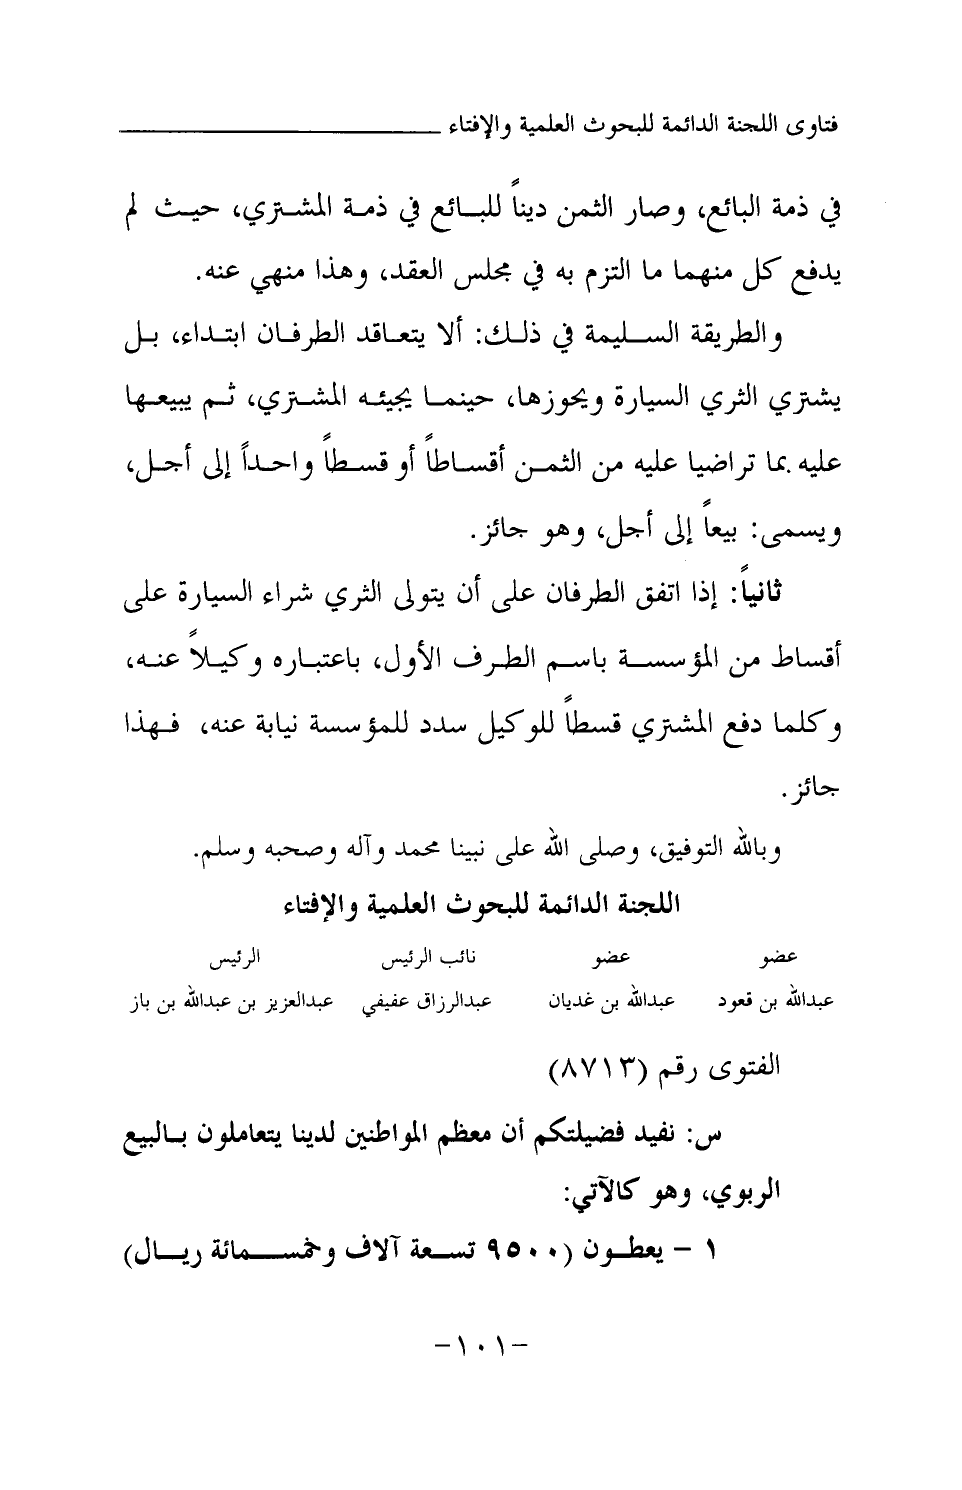 فتاوى اللجنة الدائمة للبحوث العلمية والإفتاء
في ذمة البائع، وصار الثمن ديناً للبائع في ذمة المشتري، حيث لم
يدفع كل منهما ما التزم به في مجلس العقد، وهذا منهي عنه.
والطريقة السليمة في ذلك: ألا يتعاقد الطرفان ابتداء، بل
يشتري الثري السيارة ويحوزها، حينما يجيئه المشتري، ثم يبيعها
عليه بما تراضيا عليه من الثمن أقساطاً أو قسطاً واحداً إلى أجل،
ويسمى: بيعاً إلى أجل، وهو جائز.
ثانياً: إذا اتفق الطرفان على أن يتولى الثري شراء السيارة على
أقساط من المؤسسة باسم الطرف الأول، باعتباره وكيلاً عنه،
وكلما دفع المشتري قسطاً للوكيل سدد للمؤسسة نيابة عنه، فهذا
جائز.
وبالله التوفيق، وصلى الله على نبينا محمد وآله وصحبه وسلم.
اللجنة الدائمة للبحوث العلمية والإفتاء
عضو عضو نائب الرئيس الرئيس
عبدالله بن قعود عبدالله بن غديان عبدالرزاق عفيفي عبدالعزيز بن عبدالله بن باز
الفتوى رقم (٨٧١٣)
س: نفيد فضيلتكم أن معظم المواطنين لدينا يتعاملون بالبيع
الربوي، وهو كالآتي:
١ - يعطون (٩٥٠٠ تسعة آلاف وخمسمائة ريال)
-١٠١-